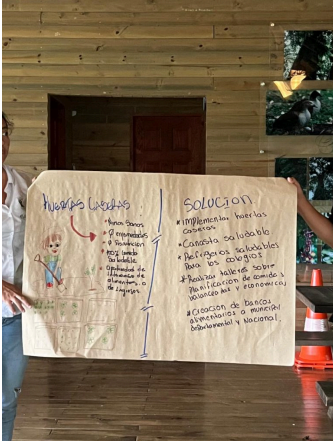 HUERTAS CASERAS
* Niños Sanos
* Ø enfermedades
* Ø
* 100% comida
Saludable
alimentos, a
SOLUCION
* Implementar huertas
caseras
* Canasta saludable
* Refrigerios saludables
Para los colegios
* Realizar talleres sobre
Planificación de comidas
balanceadas y economicas
* Creación de Bancos
alimentarios a municipal,
departamental y Nacional.